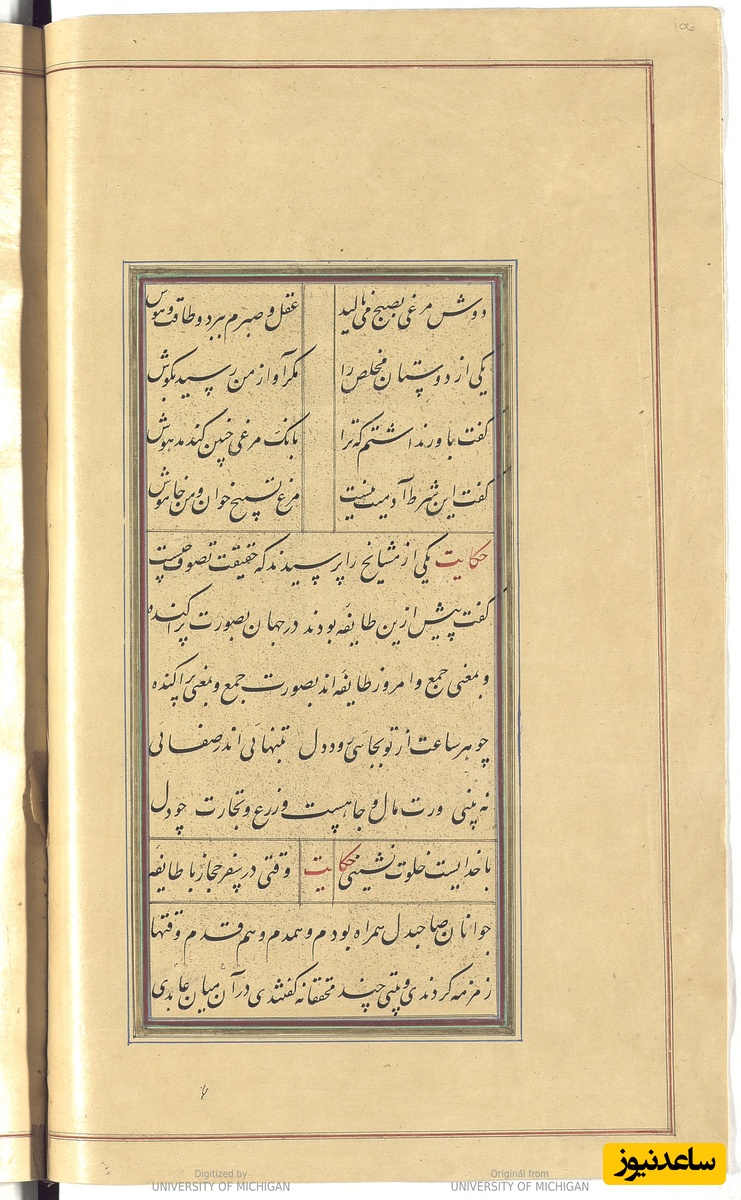 ۱۰۶
دوش مرغی بصبح می نالید عقل و صبرم ببرد و طاقت و هوش
یکی از دوستان مخلص را مگر آواز من رسید بگوش
گفت باور نداشتم که ترا بانگ مرغی چنین کند مدهوش
گفت این شرط آدمیت نیست مرغ تسبیح خوان و من خاموش
حکایت یکی از مشایخ را پرسیدند که حقیقت تصوف چیست
گفت پیش ازین طایفه بودند در جهان بصورت پراکنده
و بمعنی جمع و امروز طایفه اند بصورت جمع و بمعنی پراکنده
چو هر ساعت از تو بجایی رود دل بتنهایی اندر صفائی
نه بینی ورت مال و جاهیست و زرع و تجارت چو دل
با خدایست خلوت نشینی حکایت وقتی در سفر حجاز با طایفه
جوانان صاحبدل همراه بودم و همدم و هم قدم وقتها
زمزمه کردندی و بیتی چند محققانه گفتندی در آن میان عابدی
Digitized by
UNIVERSITY OF MICHIGAN
Original from
UNIVERSITY OF MICHIGAN
ساعدنیوز